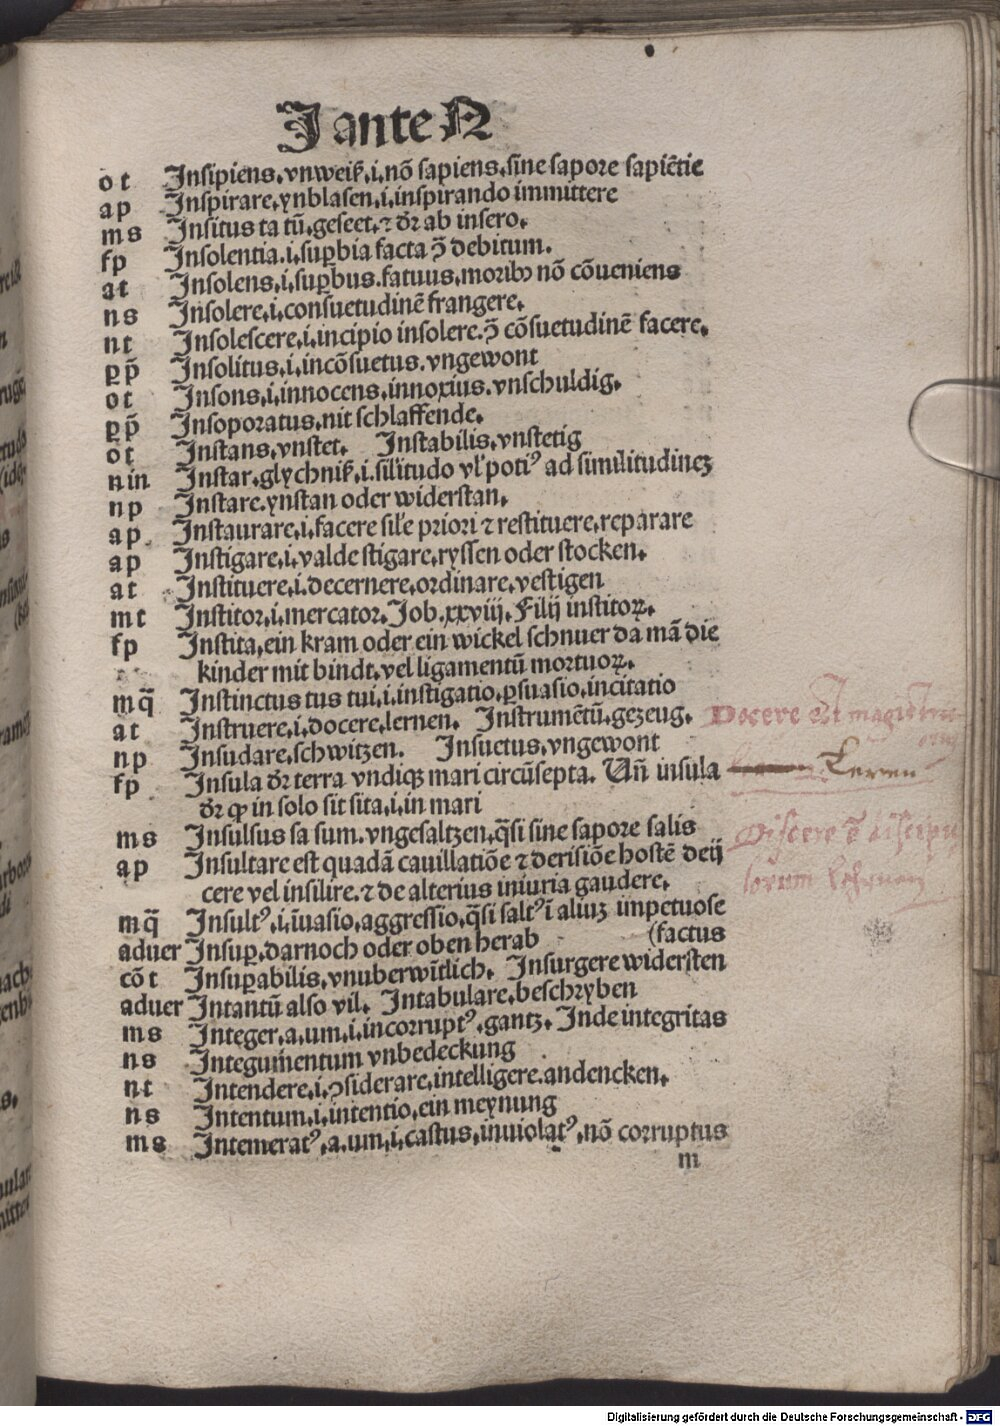 J ante N
o t Insipiens.vnweiß.i.nõ sapiens.sine sapore sapiẽtie
a p Inspirare.ynblasen.i.inspirando immittere
m s Insitus ta tũ.geseet.⁊ dr̃ ab insero.
f p Insolentia.i.suꝑbia facta ꝯ̃ debitum.
a t Insolens.i.suꝑbus.fatuus.moribꝫ nõ cõueniens
n s Insolere.i.consuetudinẽ frangere.
n t Insolescere.i.incipio insolere.ꝯ̃ cõsuetudinẽ facere.
ꝑ p̃ Insolitus.i.incõsuetus.vngewont
o t Insons.i.innocens.innoxius.vnschuldig.
ꝑ p̃ Insoporatus.nit schlaffende.
o t Instans.vnstet. Instabilis.vnstetig
n in Instar.glychniß.i.sil'itudo vl' potiꝰ ad similitudineꝫ
n p Instare.ynstan oder widerstan.
a p Instaurare.i.facere sil'e priori ⁊ restituere.reparare
a p Instigare.i.valde stigare.ryssen oder stocken.
a t Instituere.i.decernere.ordinare.vestigen
m t Institor.i.mercator.Job.xxviij.Filij institoꝝ.
f p Instita.ein kram oder ein wickel schnuer da mã die
kinder mit bindt.vel ligamentũ mortuoꝝ.
m q̃ Instinctus tus tui.i.instigatio.ꝑsuasio.incitatio
a t Instruere.i.docere.lernen. Instrumẽtũ.gezeug.
n p Insudare.schwitzen. Insuetus.vngewont
f p Insula dr̃ terra vndiqꝫ mari circũsepta. Uñ insula
dr̃ ꝙ in solo sit sita.i.in mari
m s Insulsus sa sum.vngesaltzen.q̃si sine sapore salis
a p Insultare est quadã cauillatiõe ⁊ derisiõe hostẽ deij
cere vel insilire.⁊ de alterius iniuria gaudere.
m q̃ Insultꝰ.i.ĩuasio.aggressio.q̃si saltꝰ ĩ aliuꝫ impetuose
aduer Insuꝑ.darnoch oder oben herab (factus
cõ t Insuꝑabilis.vnuberwĩtlich. Insurgere widersten
aduer Intantũ also vil. Intabulare.beschryben
m s Integer.a.um.i.incorruptꝰ.gantz.Inde integritas
n s Integumentum vnbedeckung
n t Intendere.i.ꝯsiderare.intelligere.andencken.
n s Intentum.i.intentio.ein meynung
m s Intemeratꝰ.a.um.i.castus.inuiolatꝰ.nõ corruptus
m
Docere est
Leren
Discere ẽ discipu
lorum
Digitalisierung gefördert durch die Deutsche Forschungsgemeinschaft - DFG